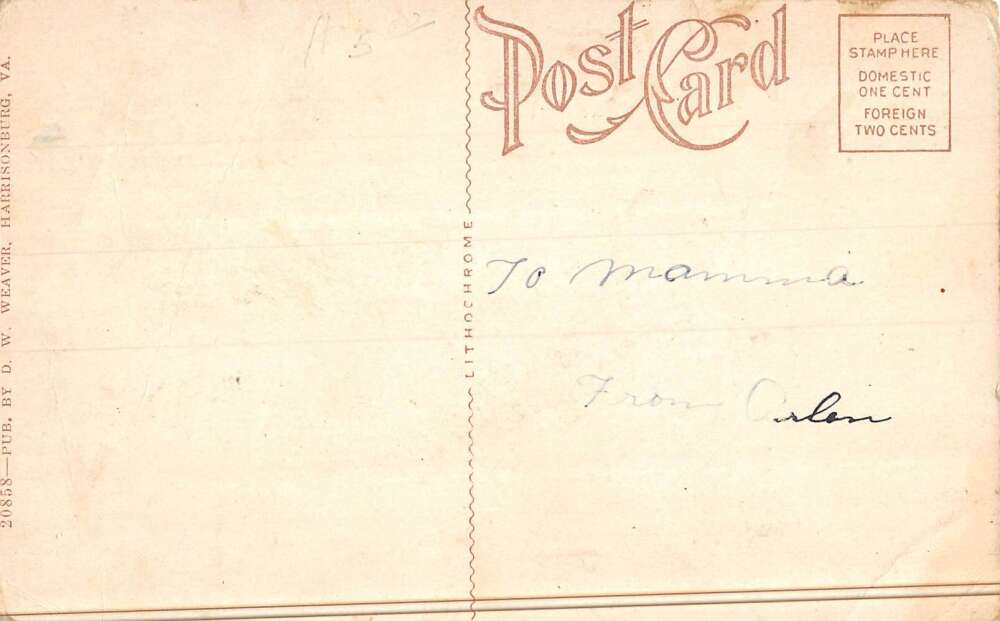 Post Card
PLACE
STAMP HERE
DOMESTIC
ONE CENT
FOREIGN
TWO CENTS
20858—PUB. BY D. W. WEAVER, HARRISONBURG, VA.
LITHOCHROME
To Mamma
From Arlen